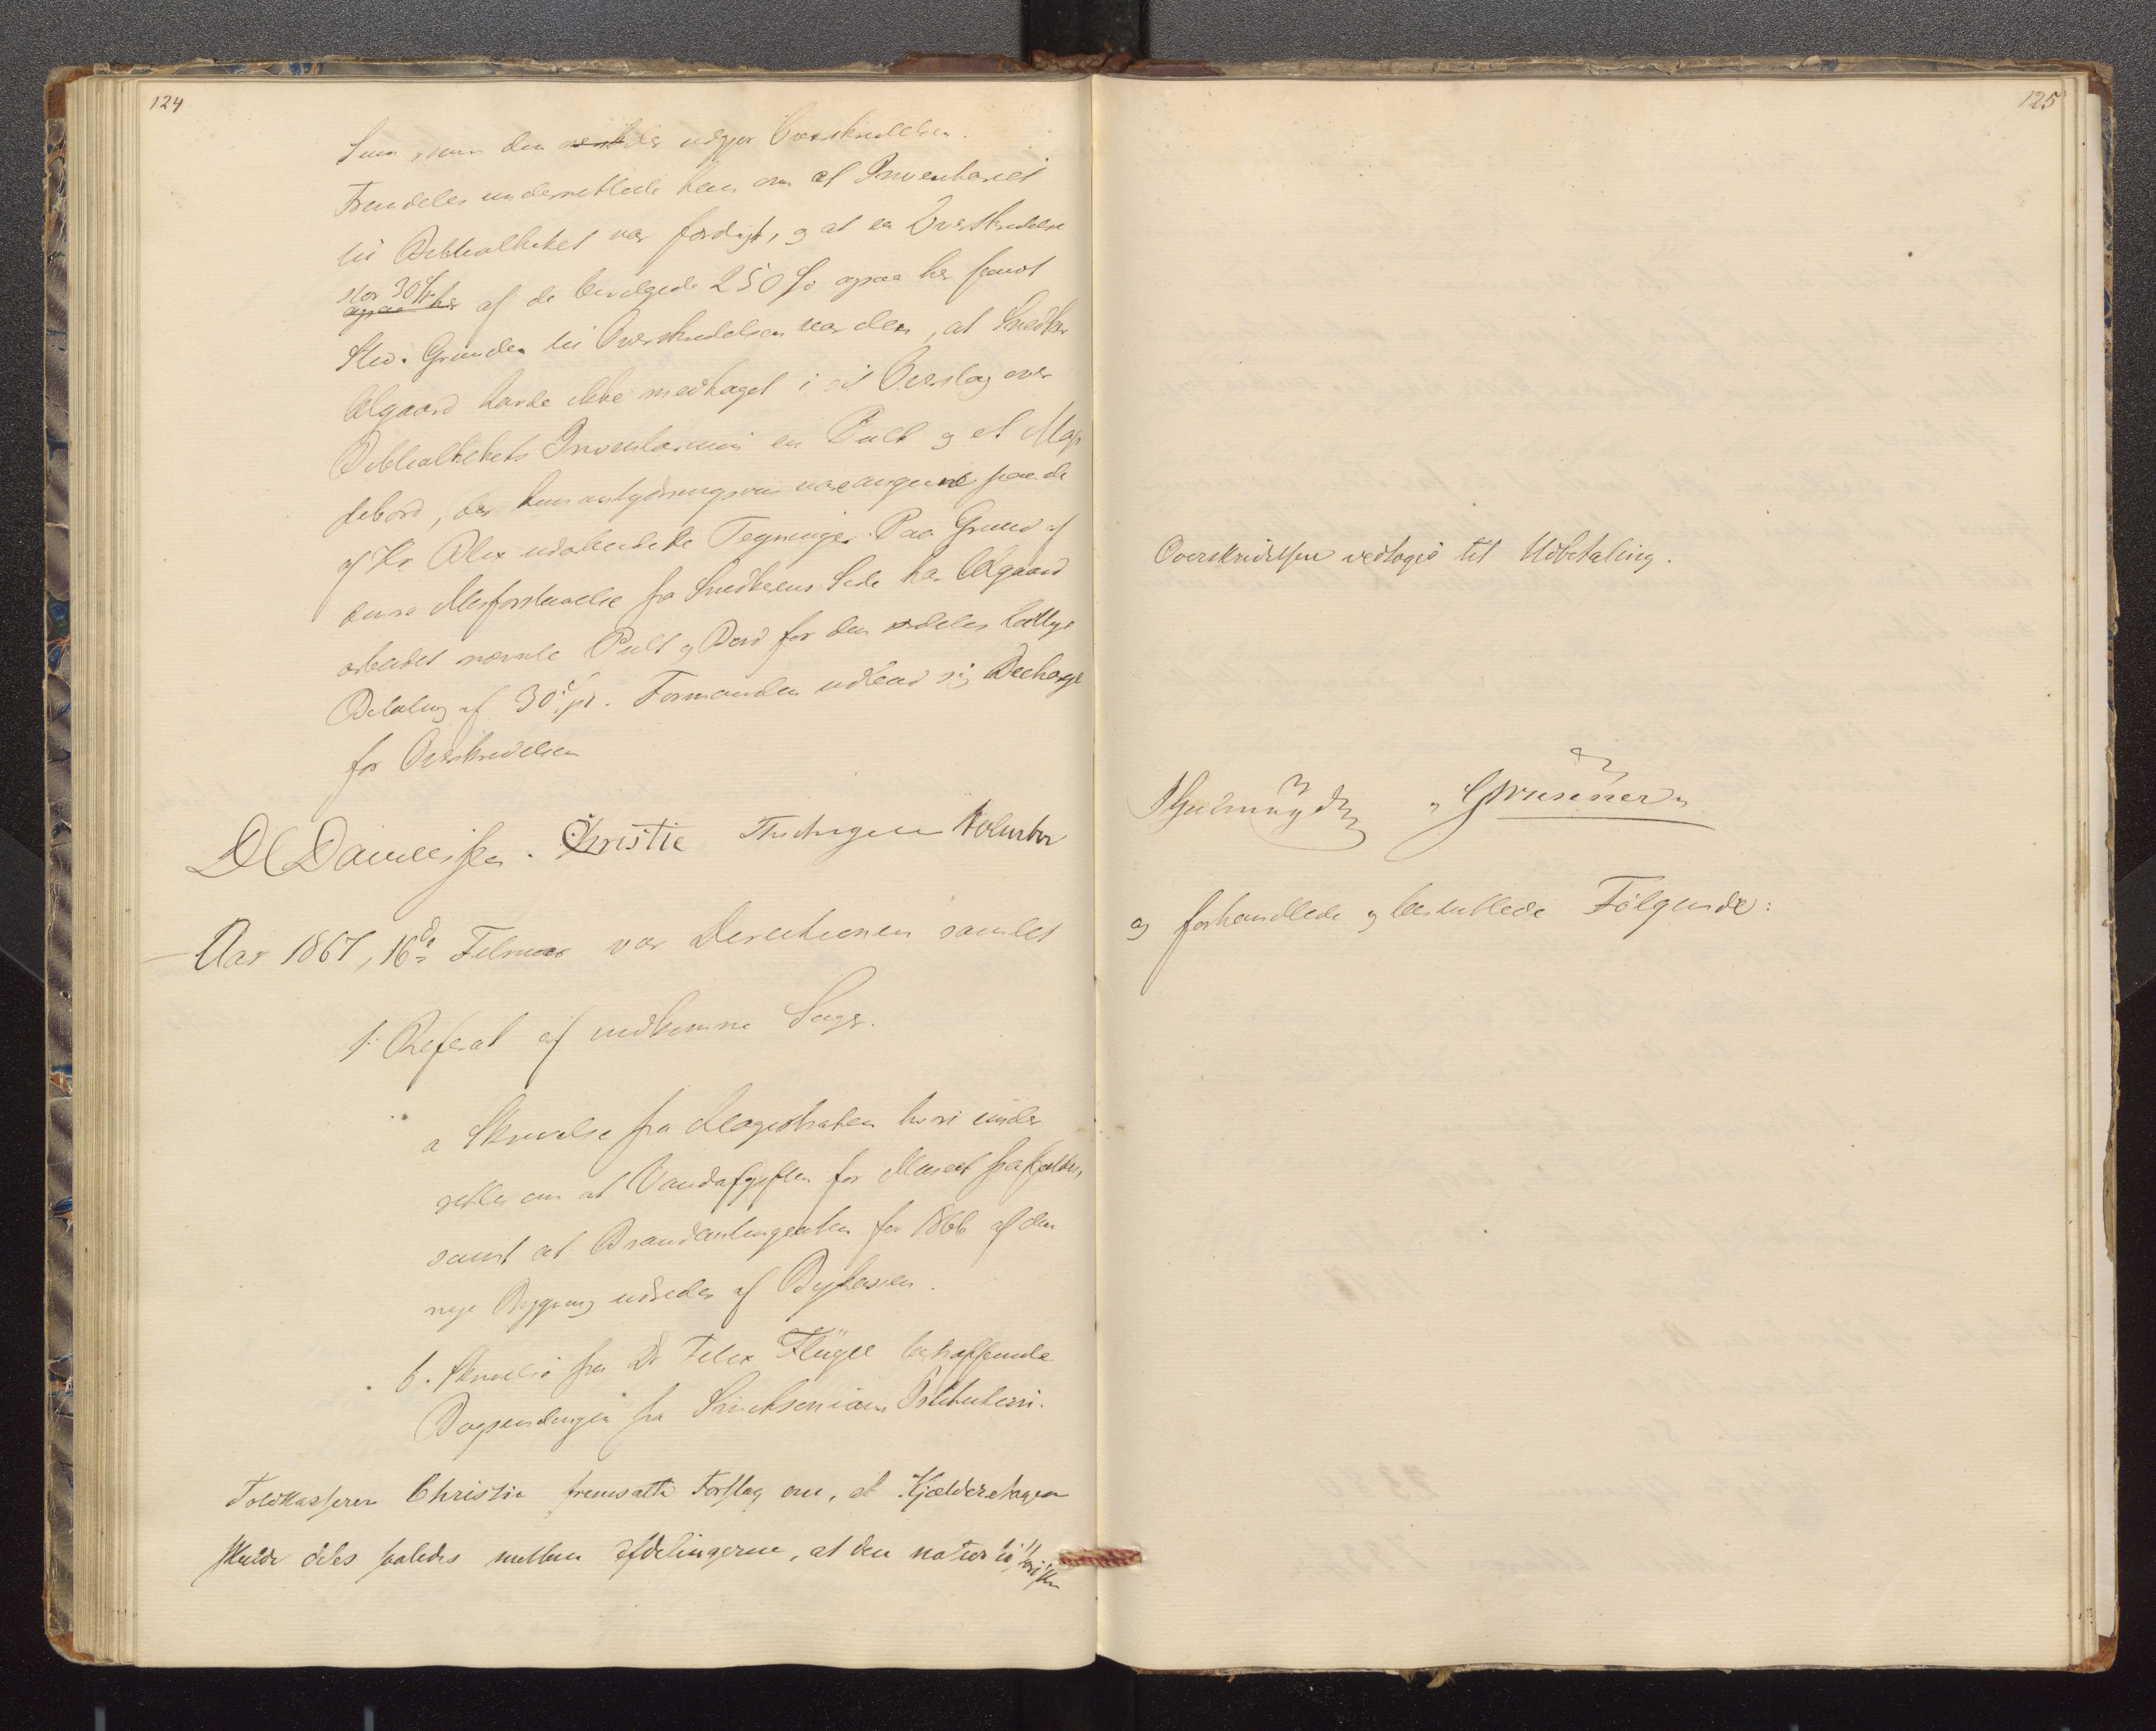 124
Sum, som den udgjør Overskridelsen.
Fremdeles underrettede han om at Inventariet
til Bibliotheket var færdigt, og at en Overskridelse
stor 30 Sp.
ogsaa her af de bevilgede 250 Sp ogsaa her fandt
Sted. Grunden til Overskridelsen var den, at Snedker
Algaard havde ikke medtaget i sit Overslag over
Bibliothekets Inventarium en Pult og et Map
pebord, der kun antydningsvis var angivne paa de
af Hr Blix udarbeidede Tegninger. Paa Grund af
denne Misforstaaelse fra Snedkerens Side har Algaard
arbeidet nævnte Pult og Bord for den særdeles billige
Betaling af 30 Sp. Formanden udbad sig Decharge
for Overskridelsen
DC Danielssen. Christie Koren
Aar 1867, 16de Februar var Directionen samlet
1. Referat af indkomne Sager.
a Skrivelse fra Magistraten hvori under
rettes om at Vandafgiften for Museet frafaldes,
samt at Brandcontingenten for 1866 af den
nye Bygning udredes af Bykassen.
b. Skrivelse fra Dr Felix Flügel betræffende
Bogsendinger fra Smithsonians Institution.
Toldkasserer Christie fremsatte Forslag om, at Kjælderetagen
skulde deles saaledes mellem Afdelingerne, at den naturhistoriske
125
Overskridelsen vedtoges til Udbetaling.
Grusener
og forhandlede og besluttede Følgende: